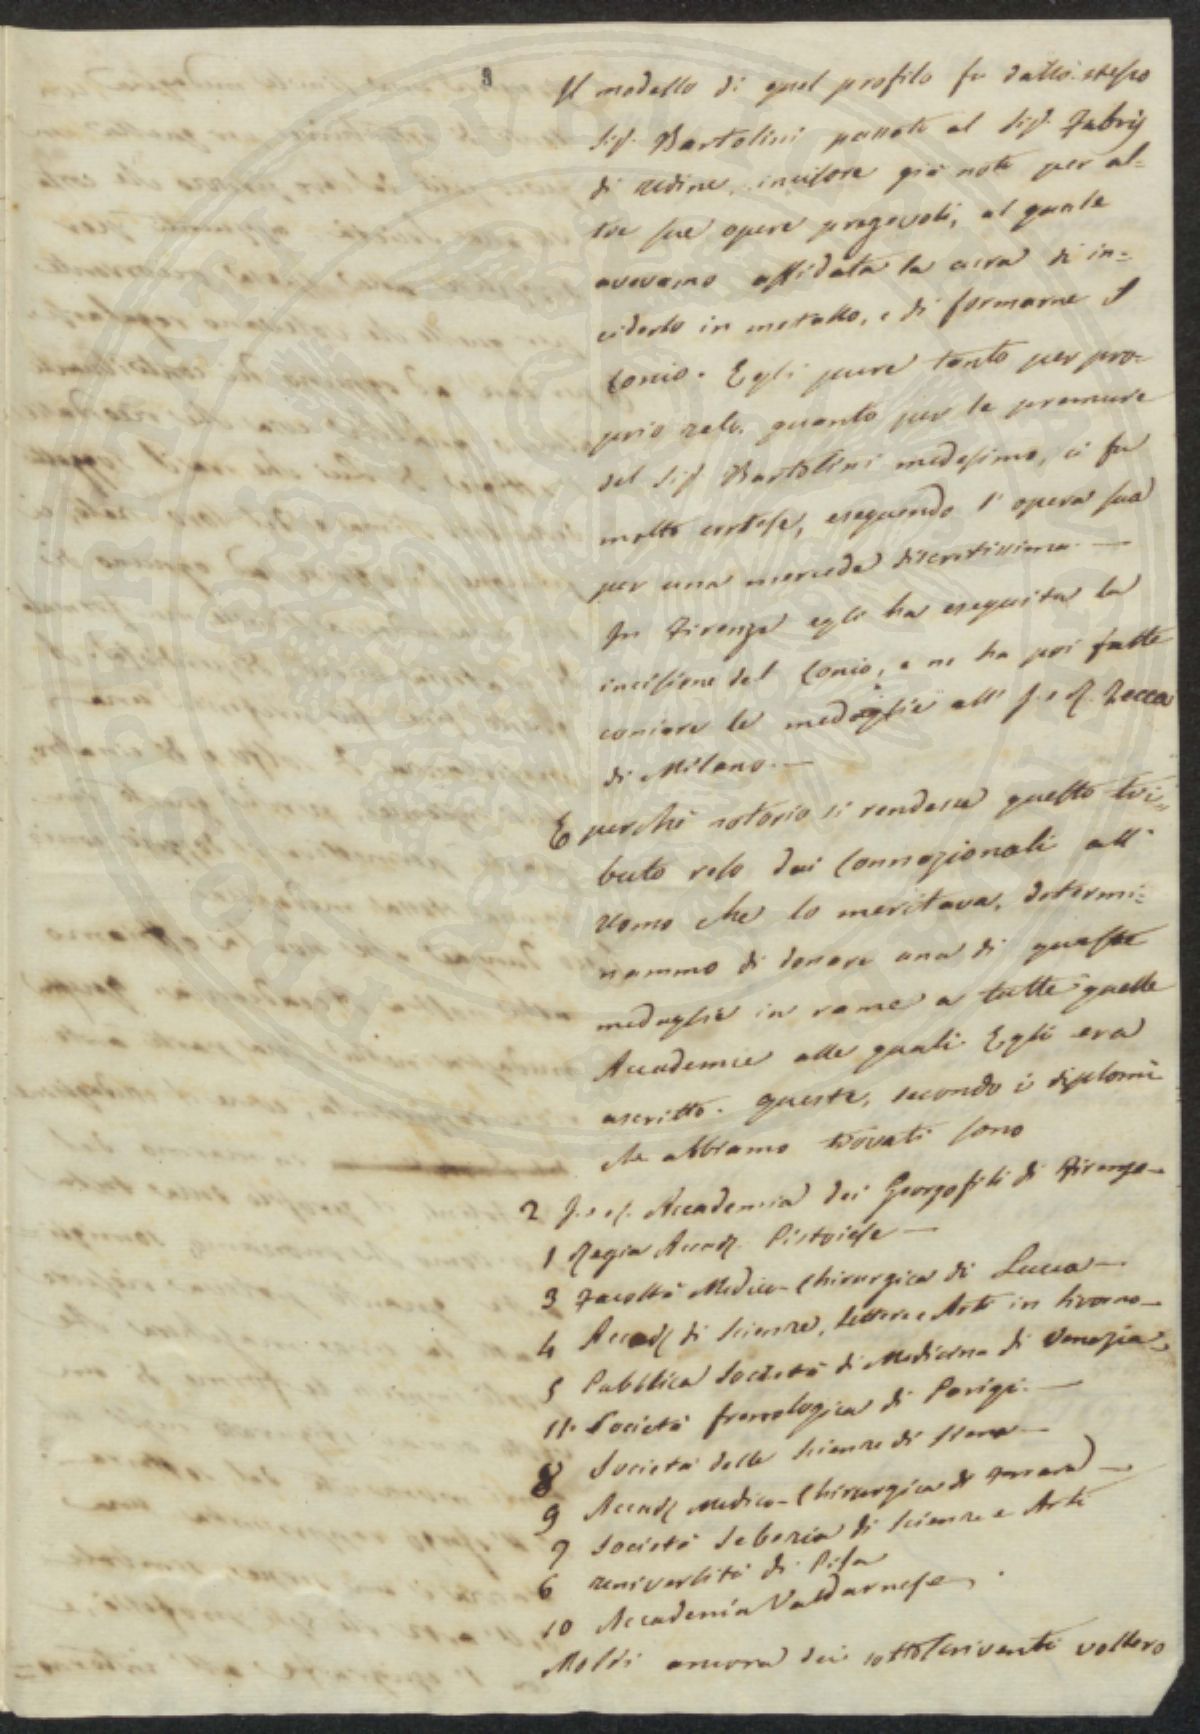 8
Il modello di quel profilo fu dallo stesso
Sig.r Bartolini passato al Sig.r Fabris
di Udine, incisore già noto per al=
tre sue opere pregevoli, al quale
avevamo affidata la cura di in=
ciderlo in metallo, e di formarne il
Conio. Egli pure tanto per pro=
prio zelo, quanto per le premure
del Sig.r Bartolini medesimo, ci fu
molto cortese, eseguendo l'opera sua
per una mercede discretissima. —
In Firenze egli ha eseguita la
incisione del Conio, e ne ha poi fatte
coniare le medaglie all' I. e R. Zecca
di Milano. —
E perchè notorio si rendesse questo tri=
buto reso dai Connazionali all'
Uomo che lo meritava, determi=
nammo di donare una di queste
medaglie in rame a tutte quelle
Accademie alle quali Egli era
ascritto. Queste, secondo i diplomi
che abbiamo trovati sono
2 I. e R. Accademia dei Georgofili di Firenze —
1 Regia Accad. Pistoiese —
3 Facoltà Medico-Chirurgica di Lucca —
4 Accad. di Scienze, Lettere e Arti in Livorno —
5 Pubblica Società di Medicina di Venezia —
11. Società frenologica di Parigi. —
8 Società delle Scienze di Siena —
9 Accad. Medico-Chirurgica di Ferrara —
7 Società Sebezia di Scienze e Arti
6 Università di Pisa
10 Accademia Valdarnese —
Molti ancora dei sottoscriventi vollero